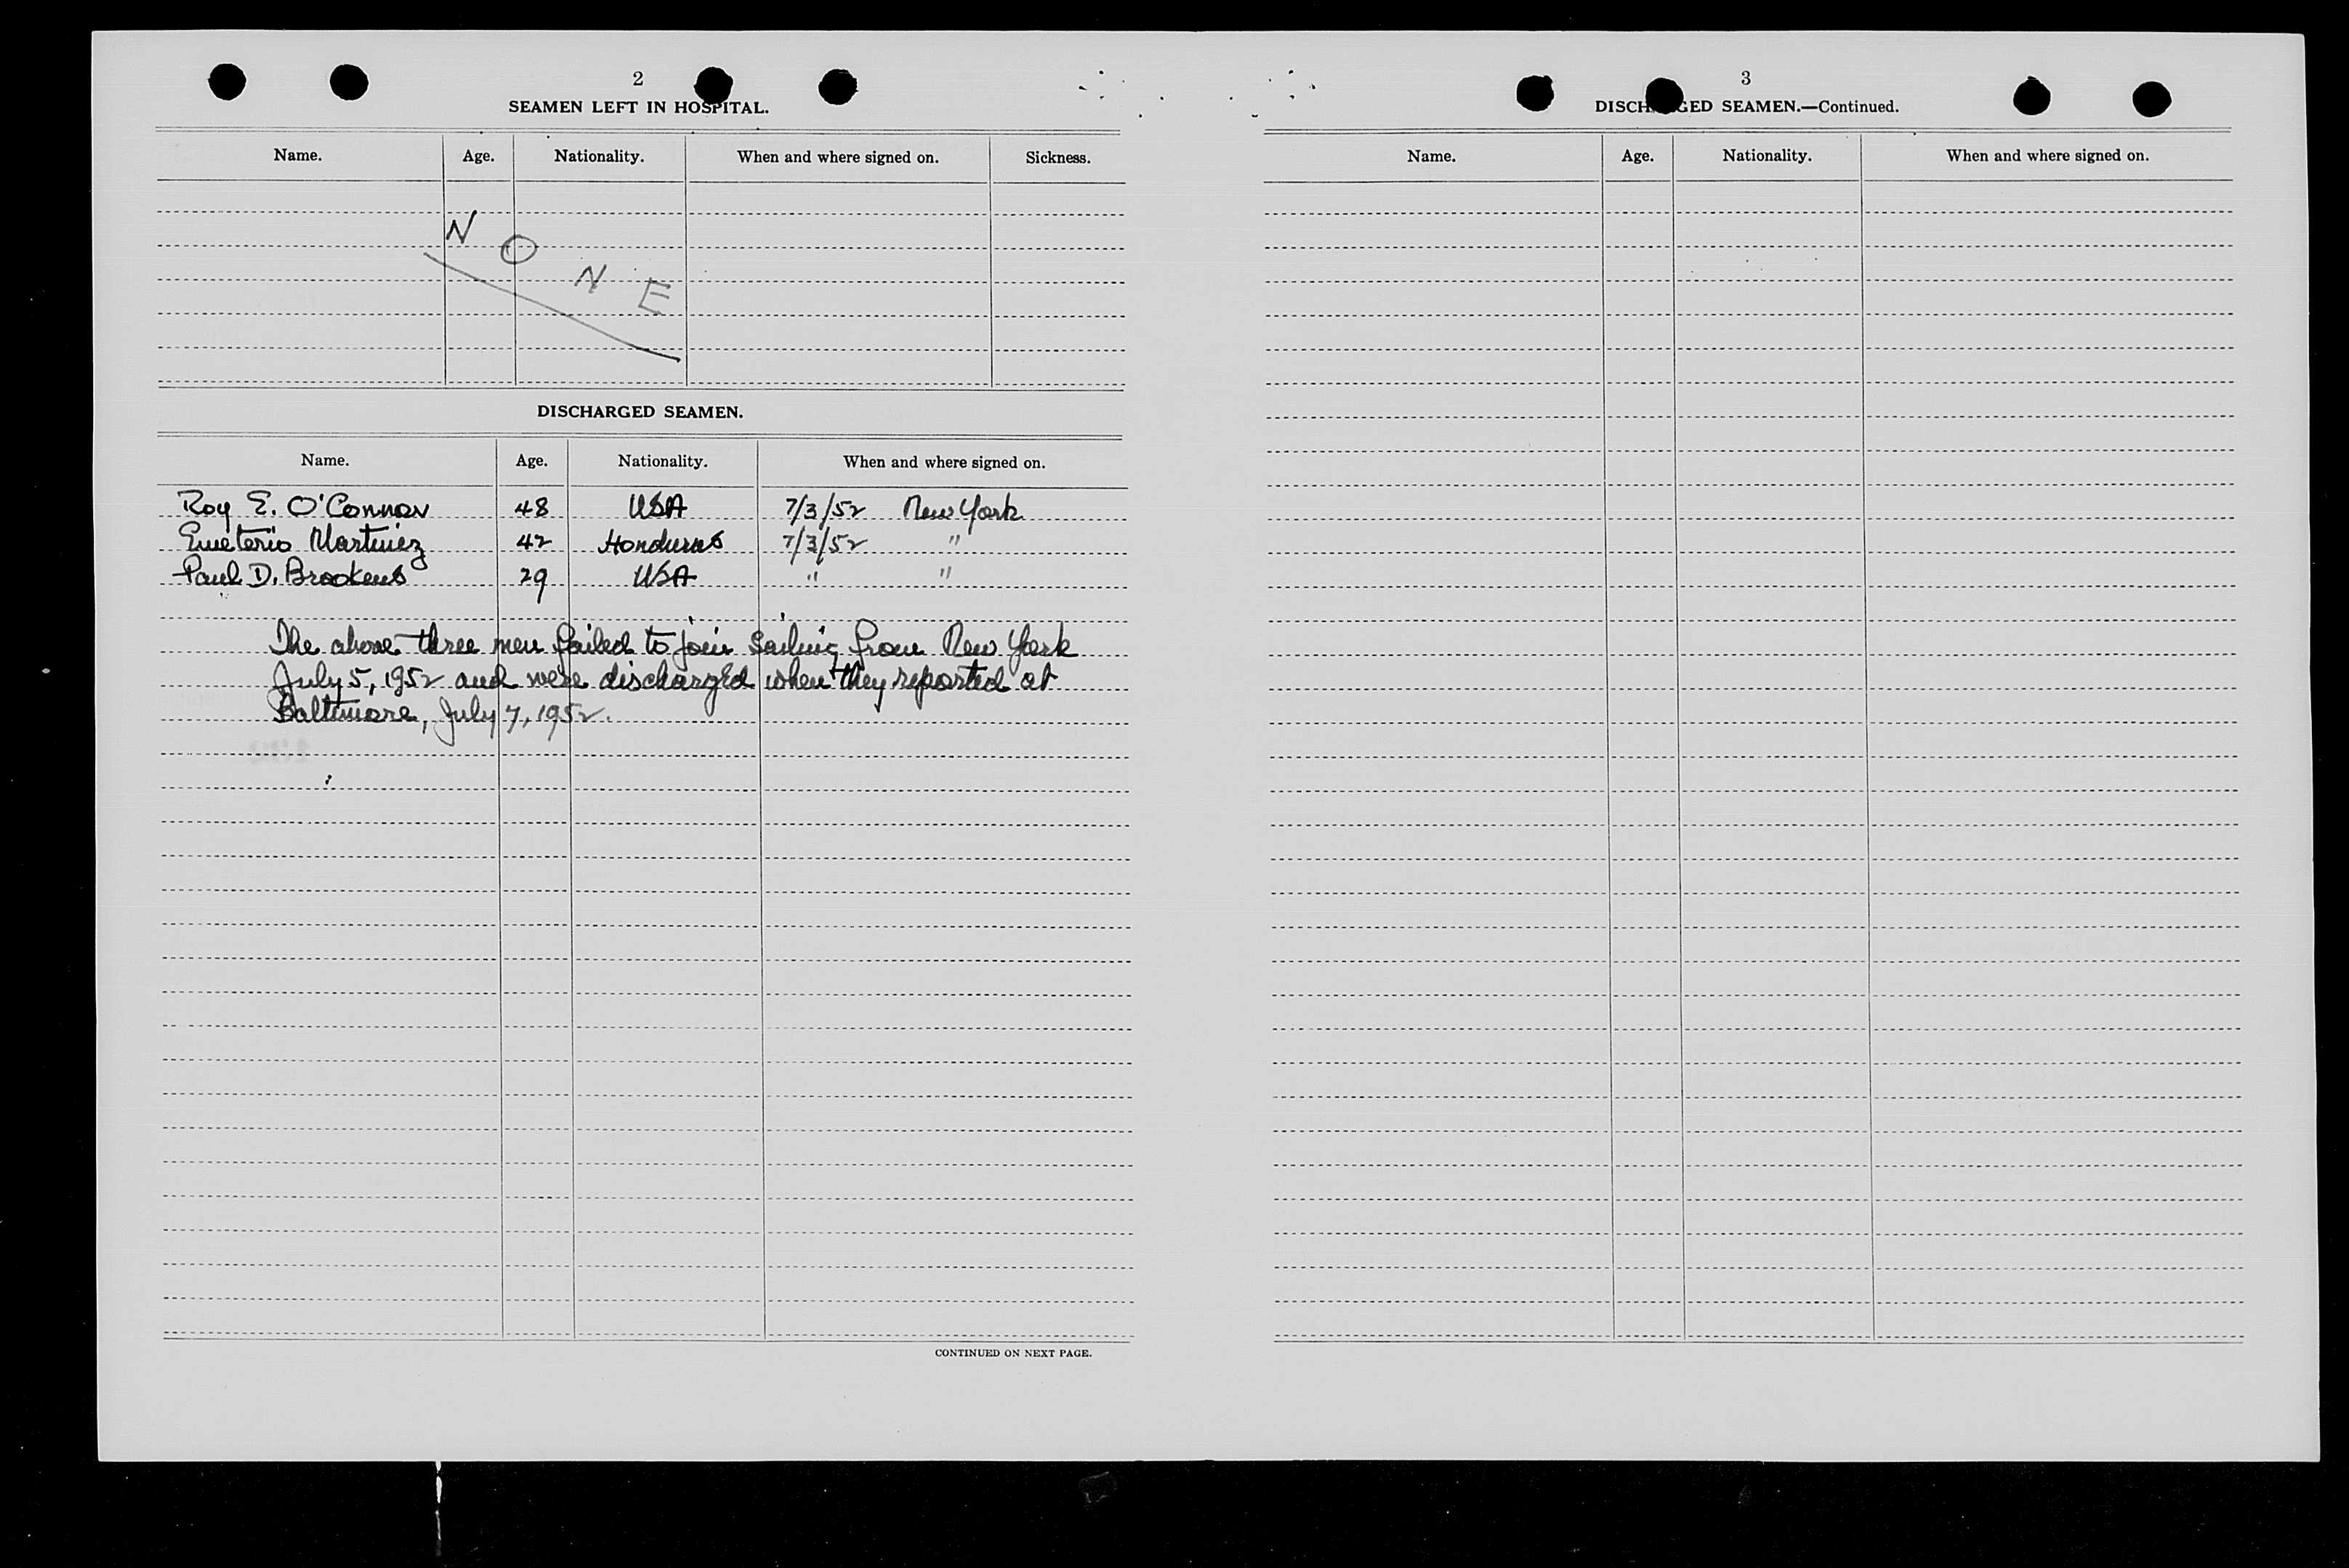 2
SEAMEN LEFT IN HOSPITAL.
Name. Age. Nationality. When and where signed on. Sickness.
NONE
DISCHARGED SEAMEN.
Name. Age. Nationality. When and where signed on.
Roy E. O'Connor 48 USA 7/3/52 New York
Emeterio Martinez 42 Honduras 7/3/52 "
Paul D. Brookens 29 USA " "
The above three men failed to join sailing from New York
July 5, 1952 and were discharged when they reported at
Baltimore, July 7, 1952.
CONTINUED ON NEXT PAGE.
3
DISCHARGED SEAMEN.—Continued.
Name. Age. Nationality. When and where signed on.